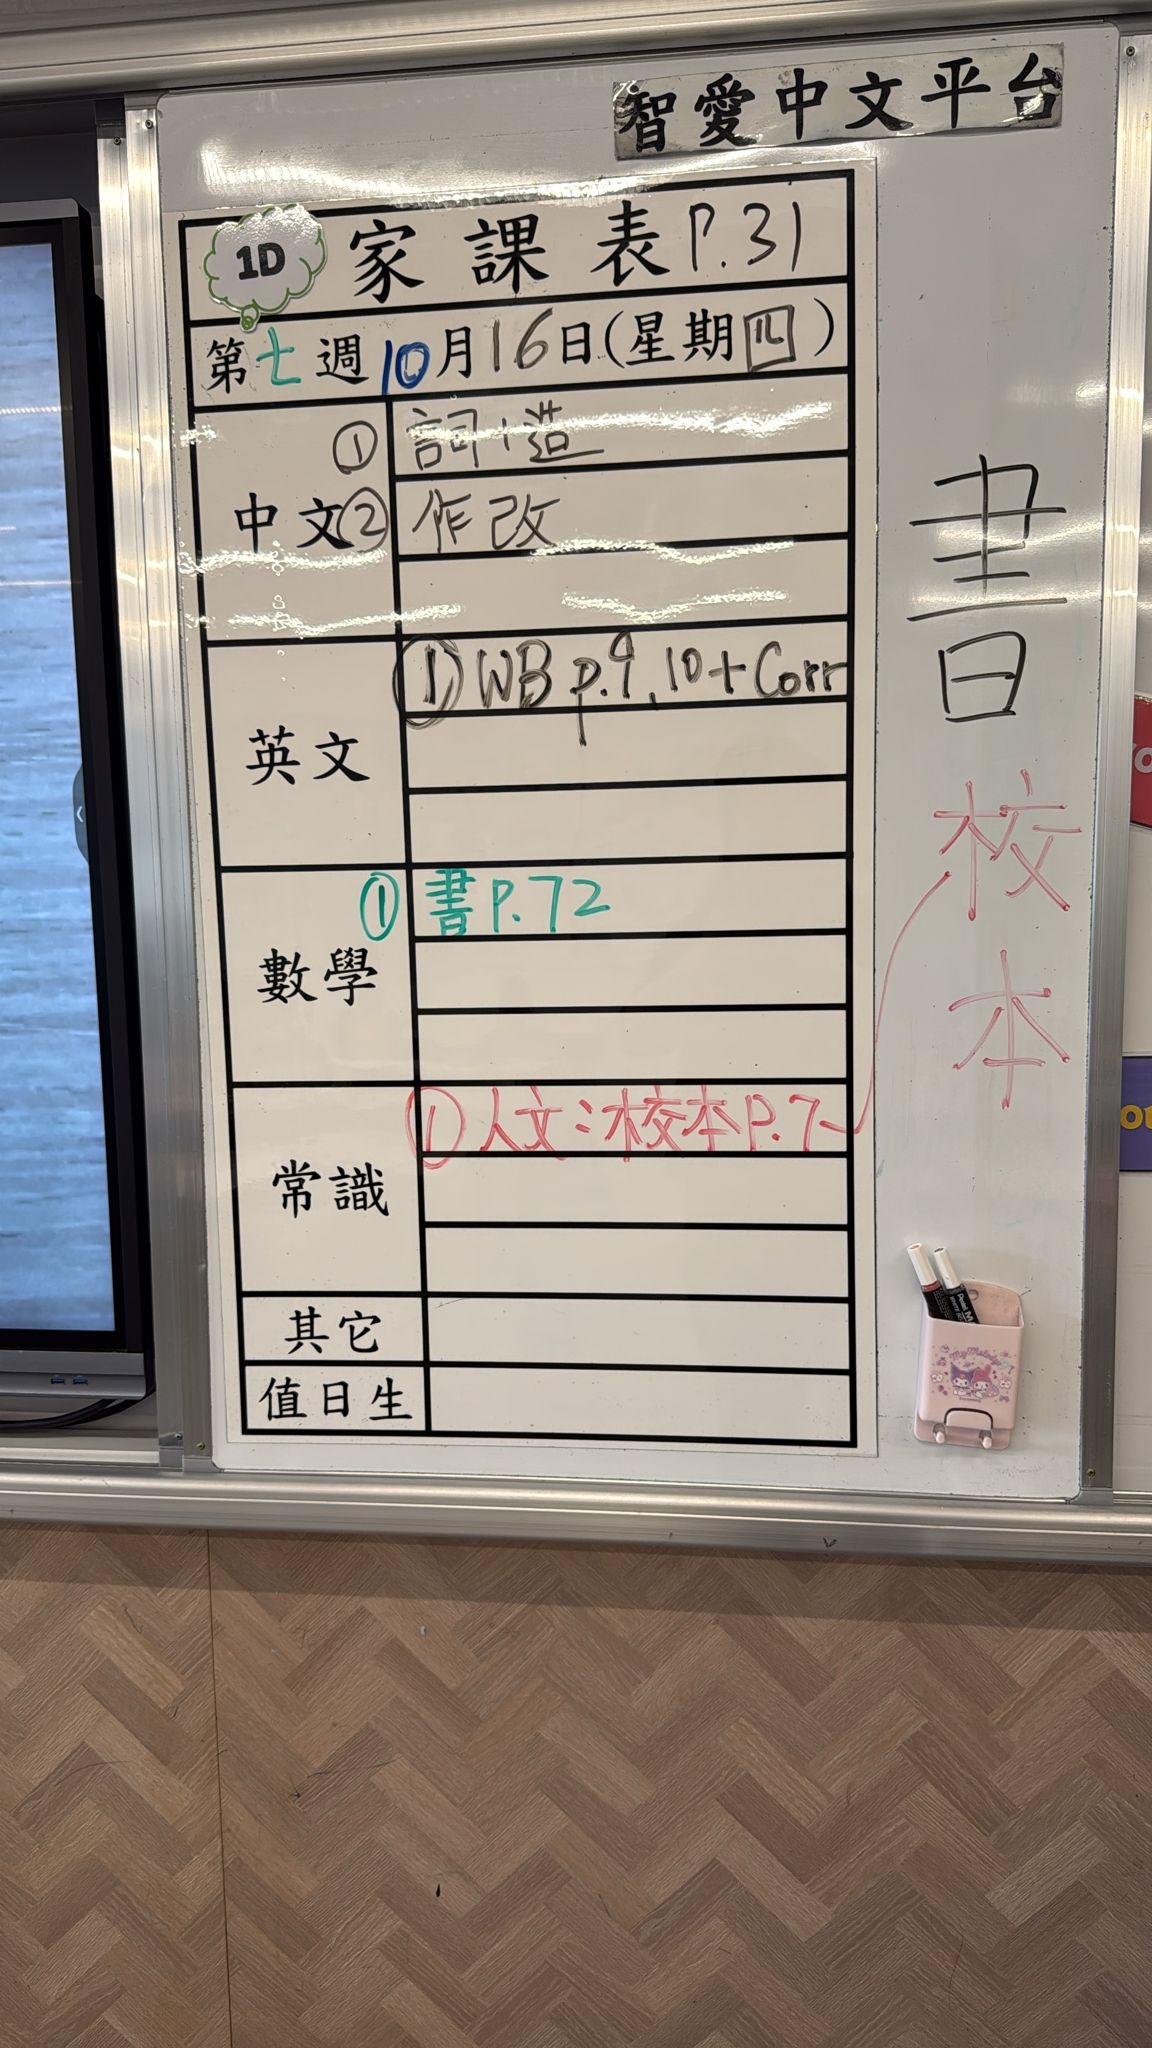 智愛中文平台
1D 家課表 P.31
第七週 10月16日(星期四)
中文
① 詞+造
② 作改
英文
① WB p.9, 10 + Corr
數學
① 書 P.72
常識
① 人文:校本P.7
其它
值日生
書
校本